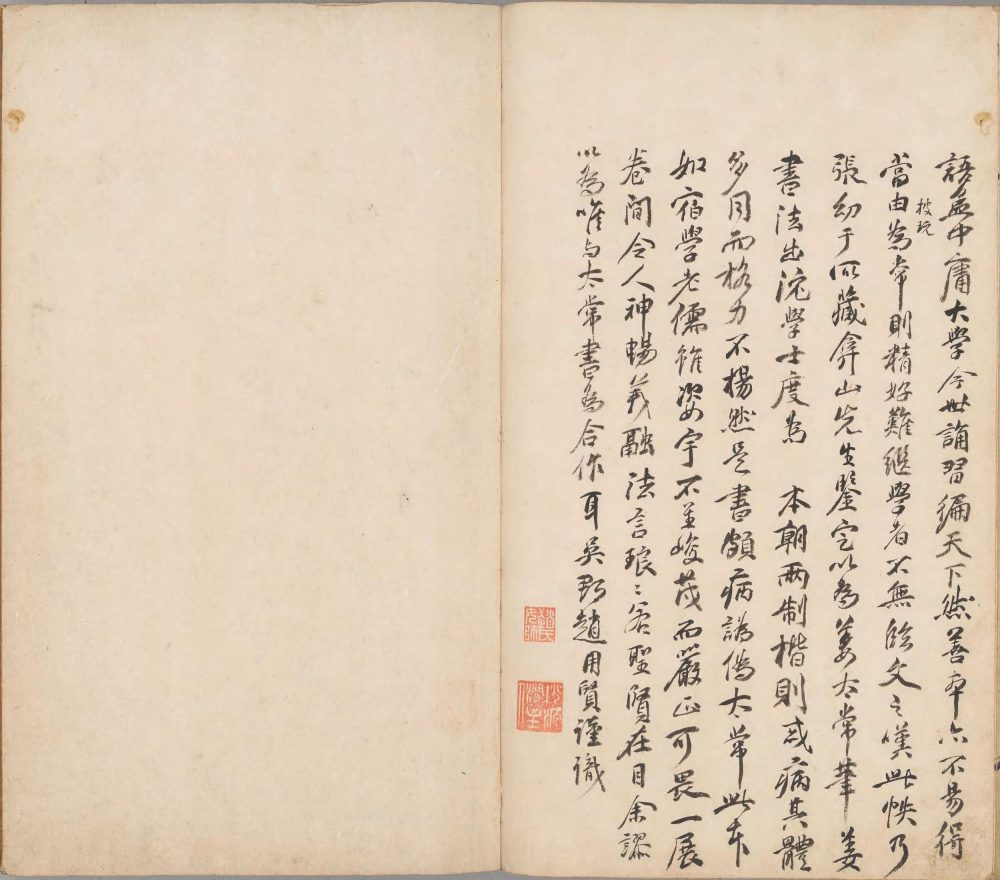 語孟中庸大學今世誦習徧天下然善本亦不易得
披玩
當由為常則精好難繼學者不無臨文之嘆此帙乃
張幼于所藏弇山先生鑒定以為姜太常筆姜
書法出沈學士度為 本朝兩制楷則或病其體
多同而格力不楊然是書頗病譌偽太常此本
如宿學老儒雖姿宇不至峻茂而嚴正可畏一展
卷間令人神暢義融法言琅〻若聖賢在目余謬
以為唯与太常書為合作耳吳郡趙用賢謹識